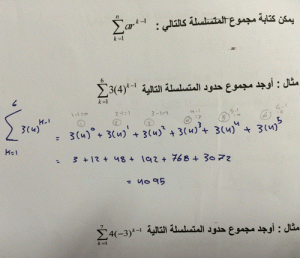 يمكن كتابة مجموع المتسلسلة كالتالي : \sum_{k=1}^{n} ar^{k-1}
مثال : أوجد مجموع حدود المتسلسلة التالية \sum_{k=1}^{6} 3(4)^{k-1}
\sum_{k=1}^{6} 3(4)^{k-1} = 3(4)^0 + 3(4)^1 + 3(4)^2 + 3(4)^3 + 3(4)^4 + 3(4)^5
= 3 + 12 + 48 + 192 + 768 + 3072
= 4095
مثال : أوجد مجموع حدود المتسلسلة التالية \sum_{k=1}^{7} 4(-3)^{k-1}